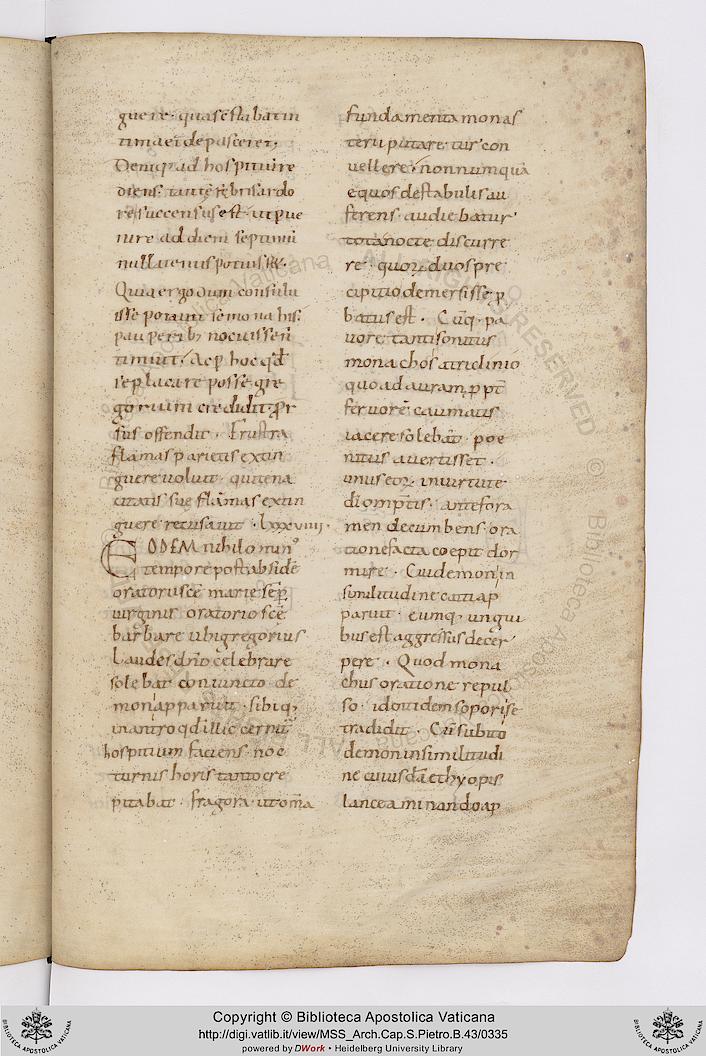 guere · quasestabatin
timaei depasceret ·
Deniq; ad hospitiū re
diens · tantę febris ardo
re succensus est · ut p ue
nire ad diem septimū
nullatenus potuiss&·
Quia ergo dum consulu
isse
pauperib; nocuissen
timuit · Ac p hoc qd
se placare posse gre
gorium credidit ·
sus offendit · Frustra
flāmas parietis extin
guere voluit · qui tena
citatis sue flāmas extin
guere recusavit · lxxxviiii ·
EODEM nihilomin'
tempore post absidē
oratorii scē marię sep
virginis oratorio scē
barbare ubi gregorius
laudes dn̄o celebrare
solebat coniuncto de
mon apparuit · sibiq;
in antro qd illic cernit
hospitium faciens · noc
turnis horis tanto cre
pitabat · fragora · ut om̄a
fundamenta monas
terii putaretur con
vellere · non numquā
equos de stabulis au
ferens · audiebatur
tota nocte discurre
re · quorū duos pre
cipitio demersisse p
batus est · Cūq; pa
vore tanti sonitus
monachos a triclinio
quo ad auram pp̄t
fervorē caumatis
iacere solebāt poe
nitus avertisset ·
unus eorū in virtute
dī omptīs · ante fora
men decumbens · ora
tione facta coepit dor
mire · Cui demon in
similitudine catti ap
paruit · eumq; ungui
bus est aggressus decer
pere · Quod mona
chus oratione repul
so · id otidem sopori se
tradidit · Cū subito
demon in similitudi
ne cuiusdā ethyopis
lancea minando ap
Copyright © Biblioteca Apostolica Vaticana
http://digi.vatlib.it/view/MSS_Arch.Cap.S.Pietro.B.43/0335
powered by DWork • Heidelberg University Library